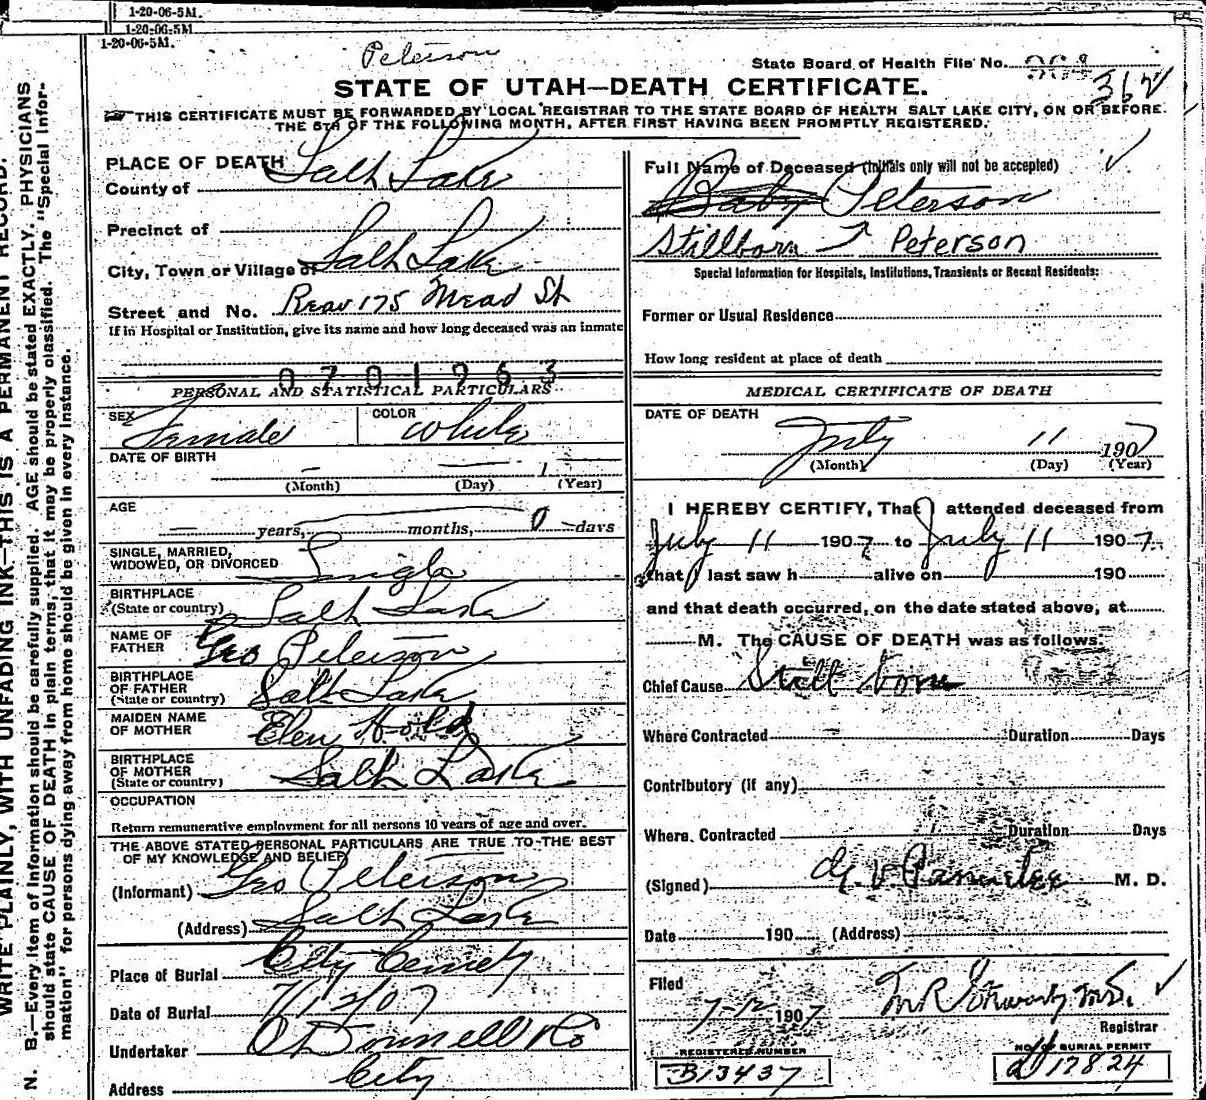 1-20-06-5M.
1-20-06-5M.
1-20-06-5M.
Peterson
State Board of Health File No. 964
362
STATE OF UTAH—DEATH CERTIFICATE.
THIS CERTIFICATE MUST BE FORWARDED BY LOCAL REGISTRAR TO THE STATE BOARD OF HEALTH SALT LAKE CITY, ON OR BEFORE
THE 5TH OF THE FOLLOWING MONTH, AFTER FIRST HAVING BEEN PROMPTLY REGISTERED.
PLACE OF DEATH
County of Salt Lake
Precinct of
City, Town or Village of Salt Lake
Street and No. Rear 175 Mead St
If in Hospital or Institution, give its name and how long deceased was an inmate
0701263
PERSONAL AND STATISTICAL PARTICULARS
SEX Female COLOR White
DATE OF BIRTH — — 1 —
(Month) (Day) (Year)
AGE — years, — months, 0 days
SINGLE, MARRIED,
WIDOWED, OR DIVORCED Single
BIRTHPLACE
(State or country) Salt Lake
NAME OF
FATHER Geo Peterson
BIRTHPLACE
OF FATHER
(State or country) Salt Lake
MAIDEN NAME
OF MOTHER Elen
BIRTHPLACE
OF MOTHER
(State or country) Salt Lake
OCCUPATION
Return remunerative employment for all persons 10 years of age and over.
THE ABOVE STATED PERSONAL PARTICULARS ARE TRUE TO THE BEST
OF MY KNOWLEDGE AND BELIEF
(Informant) Geo Peterson
(Address) Salt Lake
Place of Burial City Cemety
Date of Burial 7/12/07
Undertaker O'Donnell & Co
Address City
Full Name of Deceased (Initials only will not be accepted)
Baby Peterson
Stillborn Peterson
Special Information for Hospitals, Institutions, Transients or Recent Residents:
Former or Usual Residence
How long resident at place of death
MEDICAL CERTIFICATE OF DEATH
DATE OF DEATH
July 11 1907
(Month) (Day) (Year)
I HEREBY CERTIFY, That I attended deceased from
July 11 1907 to July 11 1907
that I last saw h alive on 190
and that death occurred, on the date stated above, at
M. The CAUSE OF DEATH was as follows:
Chief Cause Still born
Where Contracted Duration Days
Contributory (if any)
Where Contracted Duration Days
(Signed) M. D.
Date 190 (Address)
Filed
7-12 1907
Registrar
REGISTERED NUMBER
B13437
NO. OF BURIAL PERMIT
17824
WRITE PLAINLY, WITH UNFADING INK—THIS IS A PERMANENT RECORD.
N. B.—Every item of information should be carefully supplied. AGE should be stated EXACTLY. PHYSICIANS
should state CAUSE OF DEATH in plain terms, that it may be properly classified. The "Special Infor-
mation" for persons dying away from home should be given in every instance.